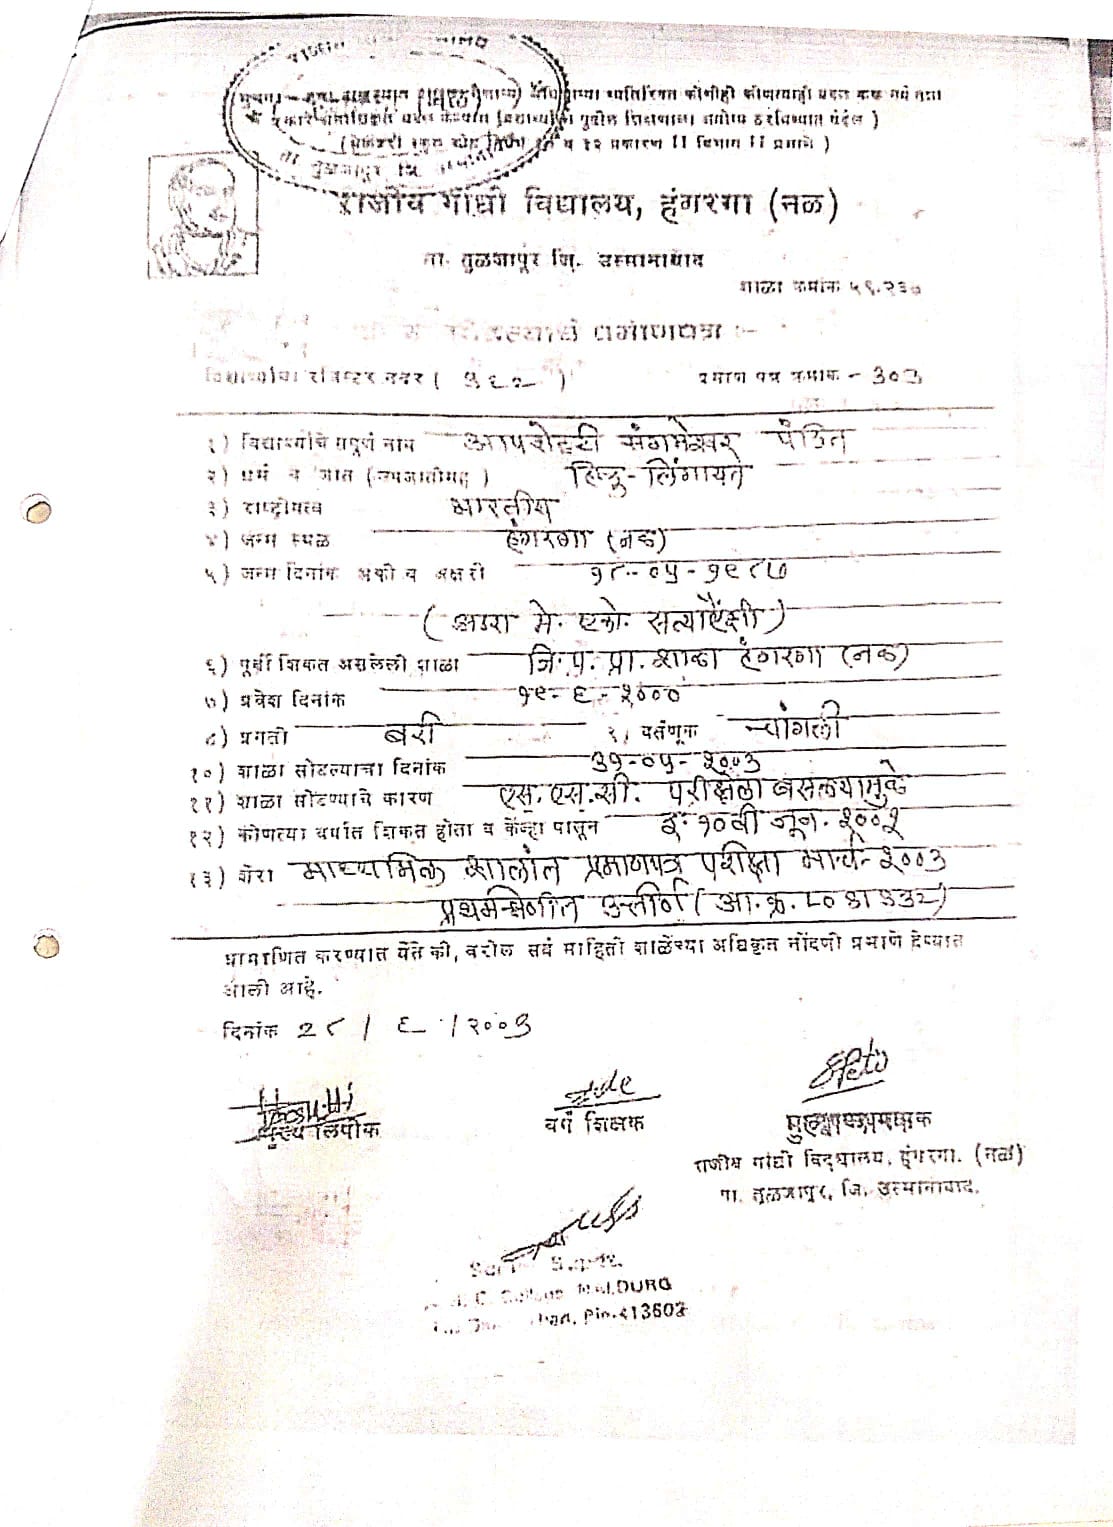 व्यतिरिक्त कोणीही कोणत्याही प्रकारे बदल करू नये तसा
पुढील शिक्षणाला अयोग्य ठरविण्यात येईल )
व १२ प्रकारण II विभाग II प्रमाणे )
ता तुळजापूर जि.
राजीव गांधी विद्यालय, हंगरगा (नळ)
ता. तुळजापूर जि. उस्मानाबाद
शाळा क्रमांक ५९.२३७
प्रमाणपत्र :-
विद्यार्थ्याचा रजिस्टर नंबर ( ) प्रमाण पत्र क्रमांक - ३०३
१) विद्यार्थ्याचे संपूर्ण नाव संगमेश्वर पंडित
२) धर्म व जात (उपजातीसह) हिन्दु - लिंगायत
३) राष्ट्रीयत्व भारतीय
४) जन्म स्थळ हंगरगा (नळ)
५) जन्म दिनांक अंकी व अक्षरी १८-०५-१९८७
(अठरा मे. एको. सत्याऐंशी)
६) पूर्वी शिकत असलेली शाळा जि. प. प्रा. शाळा हंगरगा (नळ)
७) प्रवेश दिनांक १९-६-२०००
८) प्रगती बरी ९) वर्तणूक चांगली
१०) शाळा सोडल्याचा दिनांक ३१-०५-२००३
११) शाळा सोडण्याचे कारण एस. एस. सी. परीक्षेला बसल्यामुळे
१२) कोणत्या वर्षात शिकत होता व केंव्हा पासून इ. १०वी जून. २००२
१३) शेरा माध्यमिक शालांत प्रमाणपत्र परीक्षा मार्च-२००३
प्रथमश्रेणीत उत्तीर्ण (आ. क्र.
प्रामाणित करण्यात येते की, वरील सर्व माहिती शाळेच्या अधिकृत नोंदणी प्रमाणे देण्यात
आली आहे.
दिनांक २८ / ६ / २००३
मुख्य लिपीक वर्ग शिक्षक मुख्याध्यापक
राजीव गांधी विद्यालय, हंगरगा. (नळ)
ता. तुळजापुर, जि. उस्मानाबाद.
NALDURG
Pin.413602